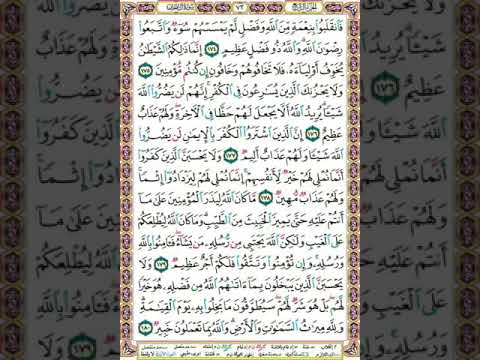 ٧٣
فَٱنقَلَبُوا۟ بِنِعْمَةٍ مِّنَ ٱللَّهِ وَفَضْلٍ لَّمْ يَمْسَسْهُمْ سُوٓءٌ وَٱتَّبَعُوا۟
رِضْوَٰنَ ٱللَّهِ وَٱللَّهُ ذُو فَضْلٍ عَظِيمٍ ١٧٤ إِنَّمَا ذَٰلِكُمُ ٱلشَّيْطَٰنُ
يُخَوِّفُ أَوْلِيَآءَهُۥ فَلَا تَخَافُوهُمْ وَخَافُونِ إِن كُنتُم مُّؤْمِنِينَ ١٧٥
وَلَا يَحْزُنكَ ٱلَّذِينَ يُسَٰرِعُونَ فِى ٱلْكُفْرِ إِنَّهُمْ لَن يَضُرُّوا۟ ٱللَّهَ
شَيْـًٔا يُرِيدُ ٱللَّهُ أَلَّا يَجْعَلَ لَهُمْ حَظًّا فِى ٱلْـَٔاخِرَةِ وَلَهُمْ عَذَابٌ
عَظِيمٌ ١٧٦ إِنَّ ٱلَّذِينَ ٱشْتَرَوُا۟ ٱلْكُفْرَ بِٱلْإِيمَٰنِ لَن يَضُرُّوا۟
ٱللَّهَ شَيْـًٔا وَلَهُمْ عَذَابٌ أَلِيمٌ ١٧٧ وَلَا يَحْسَبَنَّ ٱلَّذِينَ كَفَرُوٓا۟
أَنَّمَا نُمْلِى لَهُمْ خَيْرٌ لِّأَنفُسِهِمْ إِنَّمَا نُمْلِى لَهُمْ لِيَزْدَادُوٓا۟ إِثْمًا
وَلَهُمْ عَذَابٌ مُّهِينٌ ١٧٨ مَّا كَانَ ٱللَّهُ لِيَذَرَ ٱلْمُؤْمِنِينَ عَلَىٰ مَآ
أَنتُمْ عَلَيْهِ حَتَّىٰ يَمِيزَ ٱلْخَبِيثَ مِنَ ٱلطَّيِّبِ وَمَا كَانَ ٱللَّهُ لِيُطْلِعَكُمْ
عَلَى ٱلْغَيْبِ وَلَٰكِنَّ ٱللَّهَ يَجْتَبِى مِن رُّسُلِهِۦ مَن يَشَآءُ فَـَٔامِنُوا۟ بِٱللَّهِ
وَرُسُلِهِۦ وَإِن تُؤْمِنُوا۟ وَتَتَّقُوا۟ فَلَكُمْ أَجْرٌ عَظِيمٌ ١٧٩ وَلَا
يَحْسَبَنَّ ٱلَّذِينَ يَبْخَلُونَ بِمَآ ءَاتَىٰهُمُ ٱللَّهُ مِن فَضْلِهِۦ هُوَ خَيْرًا
لَّهُم بَلْ هُوَ شَرٌّ لَّهُمْ سَيُطَوَّقُونَ مَا بَخِلُوا۟ بِهِۦ يَوْمَ ٱلْقِيَٰمَةِ
وَلِلَّهِ مِيرَٰثُ ٱلسَّمَٰوَٰتِ وَٱلْأَرْضِ وَٱللَّهُ بِمَا تَعْمَلُونَ خَبِيرٌ ١٨٠